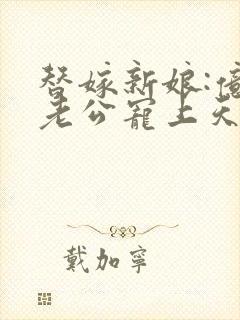 替嫁新娘:億
老公寵上天
戴加寧